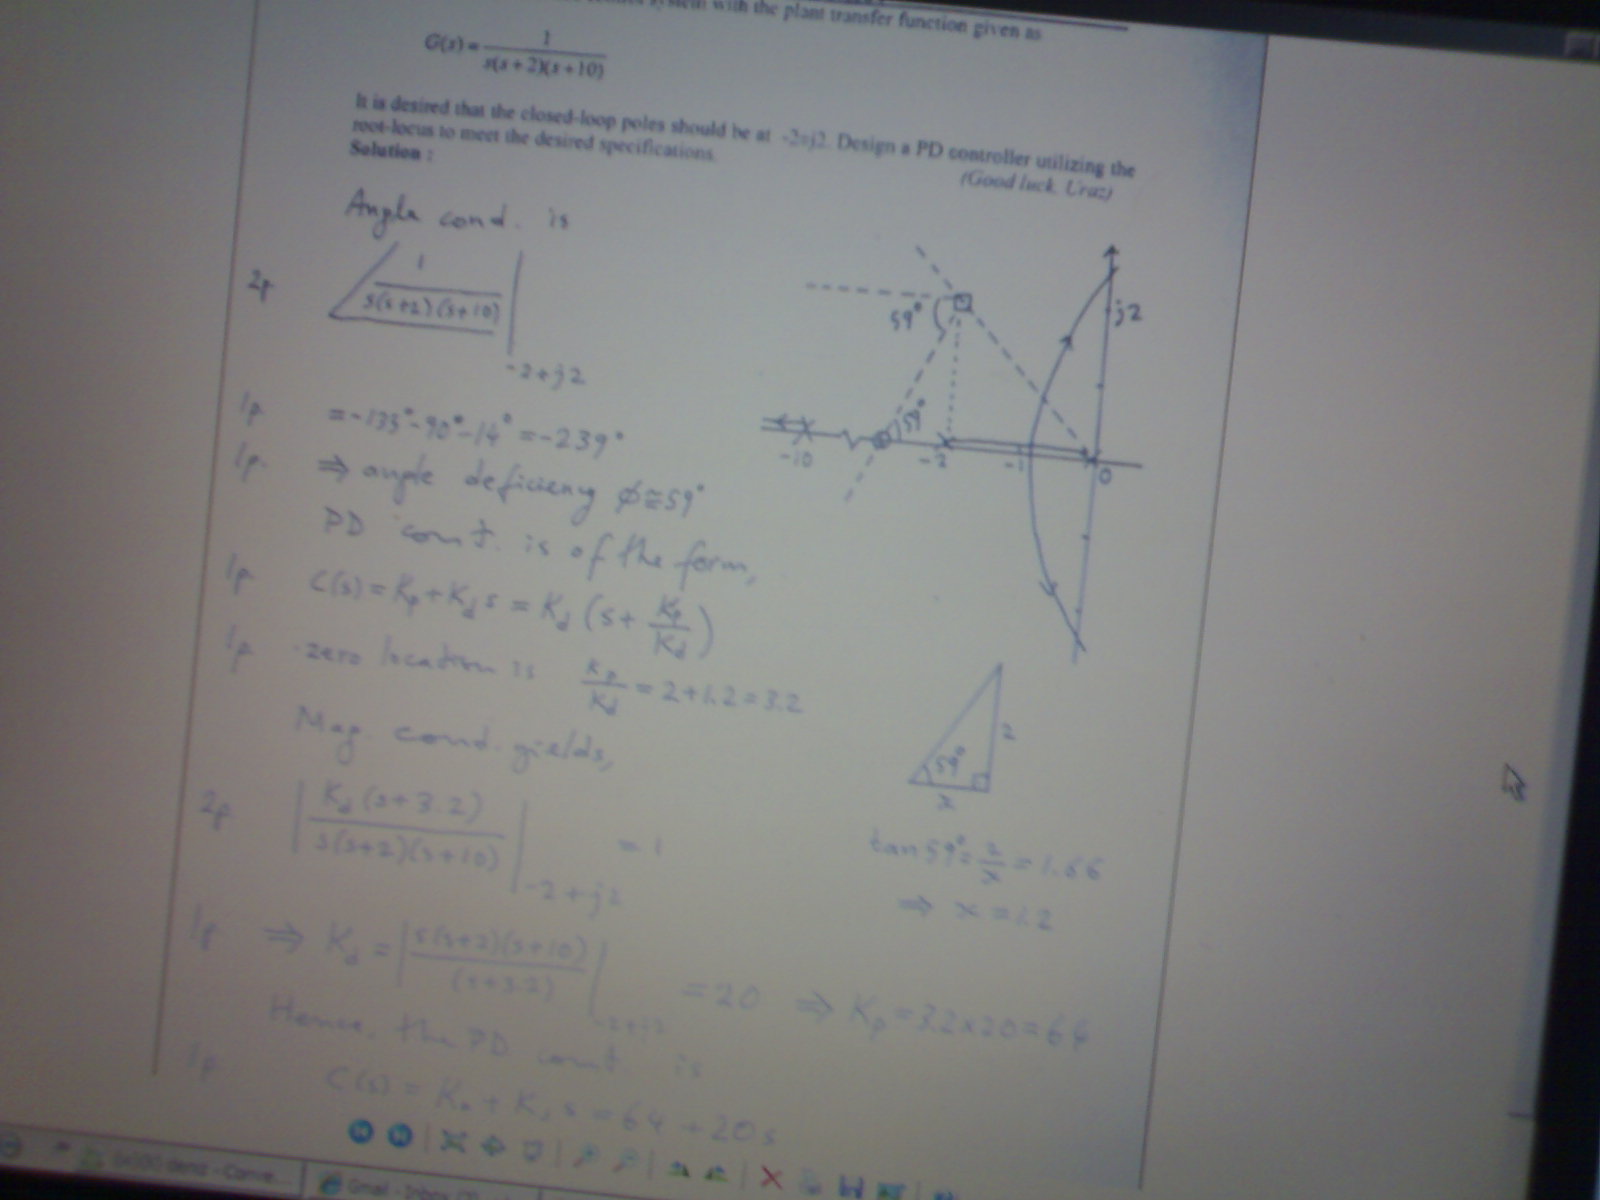 system with the plant transfer function given as
G(s) = 1 / s(s + 2)(s + 10)
It is desired that the closed-loop poles should be at -2±j2. Design a PD controller utilizing the
root-locus to meet the desired specifications.
(Good luck, Uraz)
Solution :
Angle cond. is
2p 1 / s(s+2)(s+10) | -2+j2
1p = -135° - 90° - 14° = -239°
1p. ⇒ angle deficieny φ ≅ 59°
PD cont. is of the form,
1p C(s) = Kp + Kd s = Kd (s + Kp/Kd)
1p zero location is Kp/Kd = 2 + 1.2 = 3.2
Mag cond. yields,
2p | Kd (s+3.2) / s(s+2)(s+10) | -2+j2 = 1
1p ⇒ Kd = | s(s+2)(s+10) / (s+3.2) | -2+j2 = 20 ⇒ Kp = 3.2x20 = 64
Hence, the PD cont. is
1p C(s) = Kp + Kd s = 64 + 20s
59°
j2
59°
-10
-2
-1
0
59°
2
x
tan59° = 2/x = 1.66
⇒ x = 1.2
Gmail - Inbox